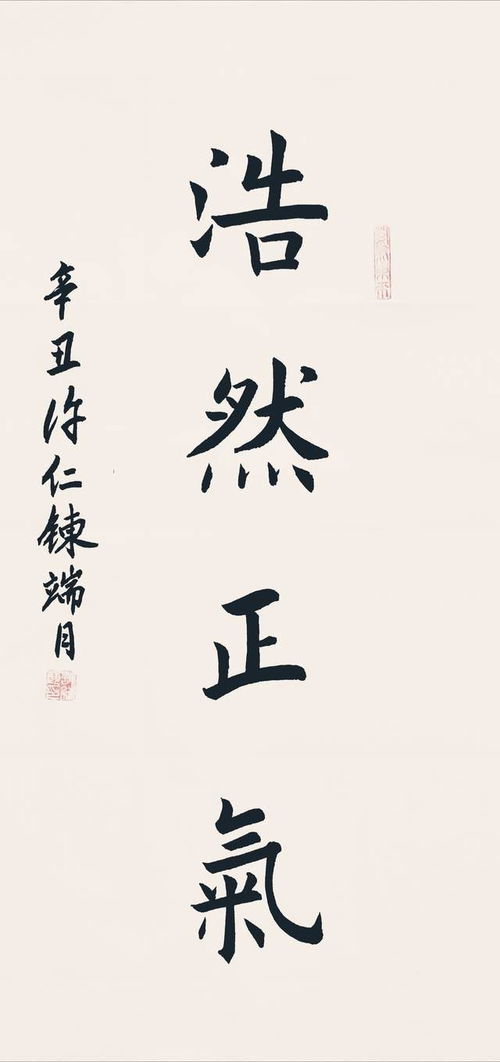 浩然正氣
辛丑許仁鍊端月